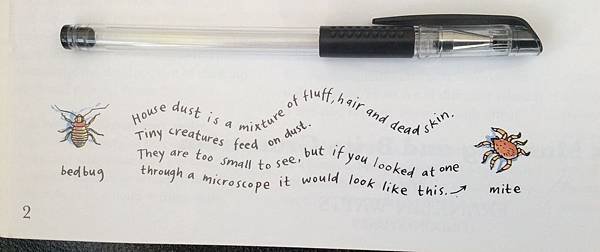 House dust is a mixture of fluff, hair and dead skin.
Tiny creatures feed on dust.
They are too small to see, but if you looked at one
through a microscope it would look like this.→
bedbug
mite
2